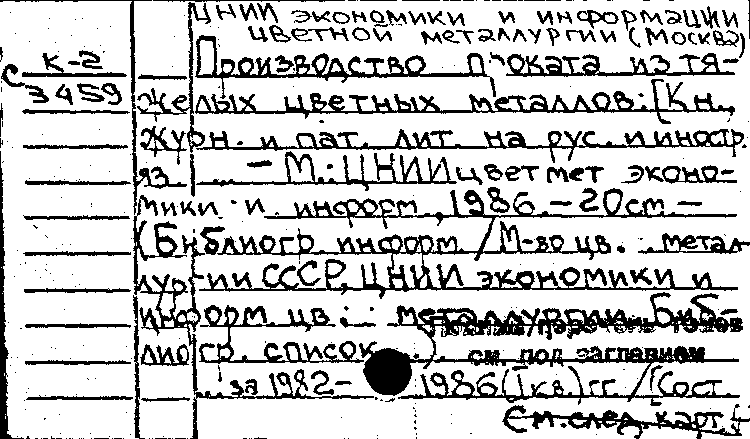 ЦНИИ экономики и информации
цветной металлургии (Москва)
К-2
Производство проката из тя-
С 3459
желых цветных металлов: [Кн.,
журн. и пат. лит. на рус. и иностр.
яз. ... — М.: ЦНИИцветмет эконо-
мики и информ., 1986. — 20см. —
(Библиогр. информ. / М-во цв. металлургии
лургии СССР, ЦНИИ экономики и
информ. цв. металлургии. Биб-
лиогр. список ...).
Полный перечень томов
см. под заглавием
... за 1982— 1986 (I кв.) гг. / [Сост.
См. след. карт.